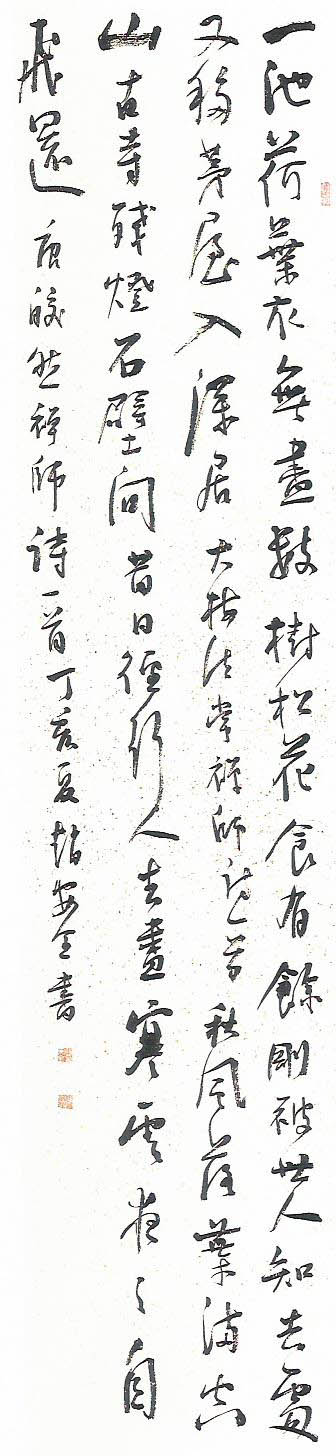 一池荷葉衣無盡數樹松花食有餘剛被世人知去處
又移茅屋入深居大梅法常禪師詩一首秋風落葉滿空
山古寺殘燈石壁間昔日徑行人去盡寒雲夜々自
飛還唐皎然禪師詩一首丁亥夏趙安全書